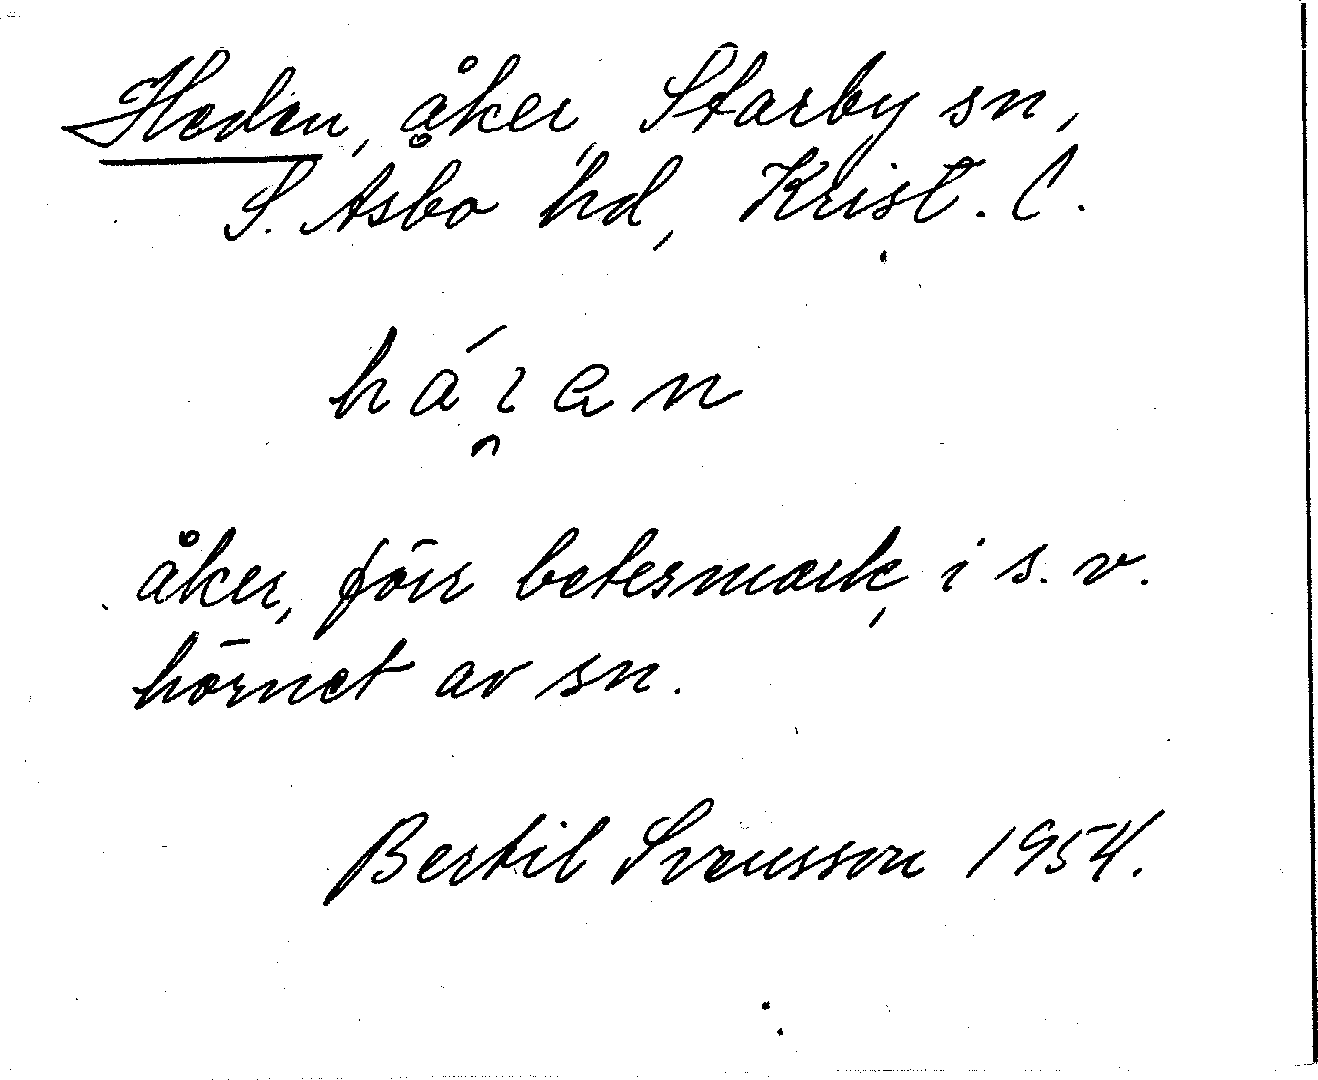 Heden, åker, Starby sn,
S. Åsbo hd, Krist. l.
åker, förr betesmark, i s.v.
hörnet av sn.
Bertil Svensson 1954.